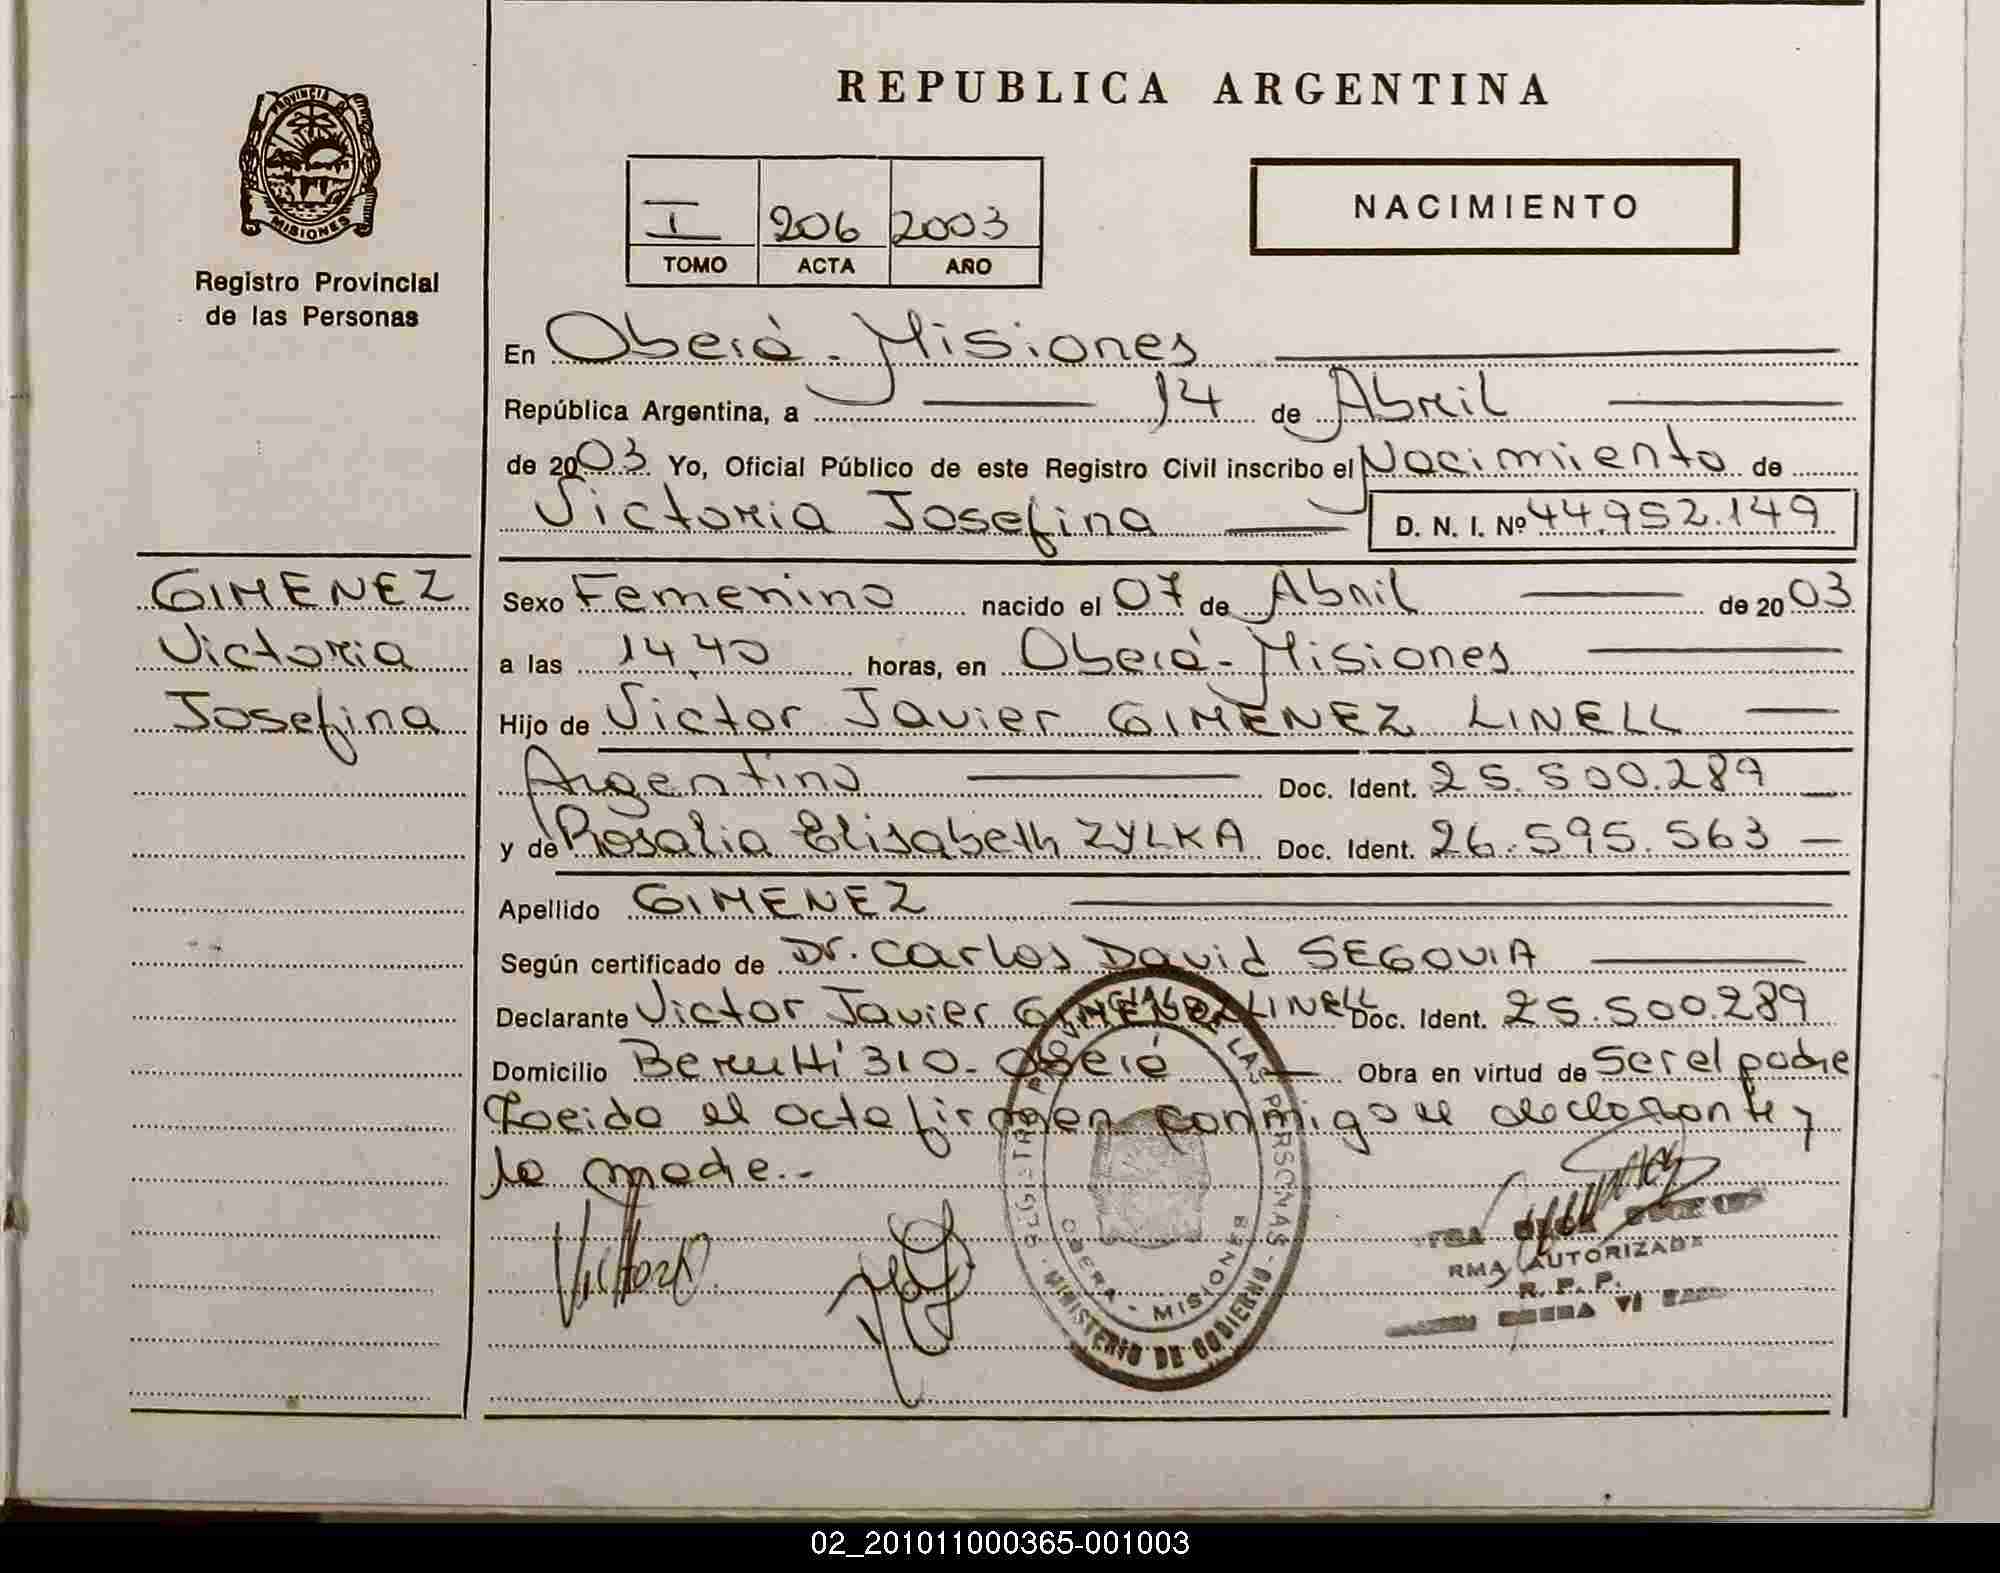 REPUBLICA ARGENTINA
PROVINCIA DE
MISIONES
Registro Provincial
de las Personas
I 206 2003
TOMO ACTA AÑO
NACIMIENTO
En Oberá - Misiones
República Argentina, a 14 de Abril
de 2003 Yo, Oficial Público de este Registro Civil inscribo el Nacimiento de
Victoria Josefina D. N. I. Nº 44.952.149
GIMENEZ
Victoria
Josefina
Sexo Femenino nacido el 07 de Abril de 2003
a las 14,40 horas, en Oberá - Misiones
Hijo de Victor Javier GIMENEZ LINELL
Argentino Doc. Ident. 25.500.289
y de Rosalia Elisabeth ZYLKA Doc. Ident. 26.595.563
Apellido GIMENEZ
Según certificado de Dr. Carlos David SEGOVIA
Declarante Victor Javier GIMENEZ LINELL Doc. Ident. 25.500.289
Domicilio Berutti 310 - Oberá Obra en virtud de ser el padre
Leido el acta firman conmigo el declarante y
la madre.-
PROVINCIAL DE LAS PERSONAS - MINISTERIO DE GOBIERNO
OBERA - MISIONES
RMA AUTORIZADA
R. P. P.
02_201011000365-001003